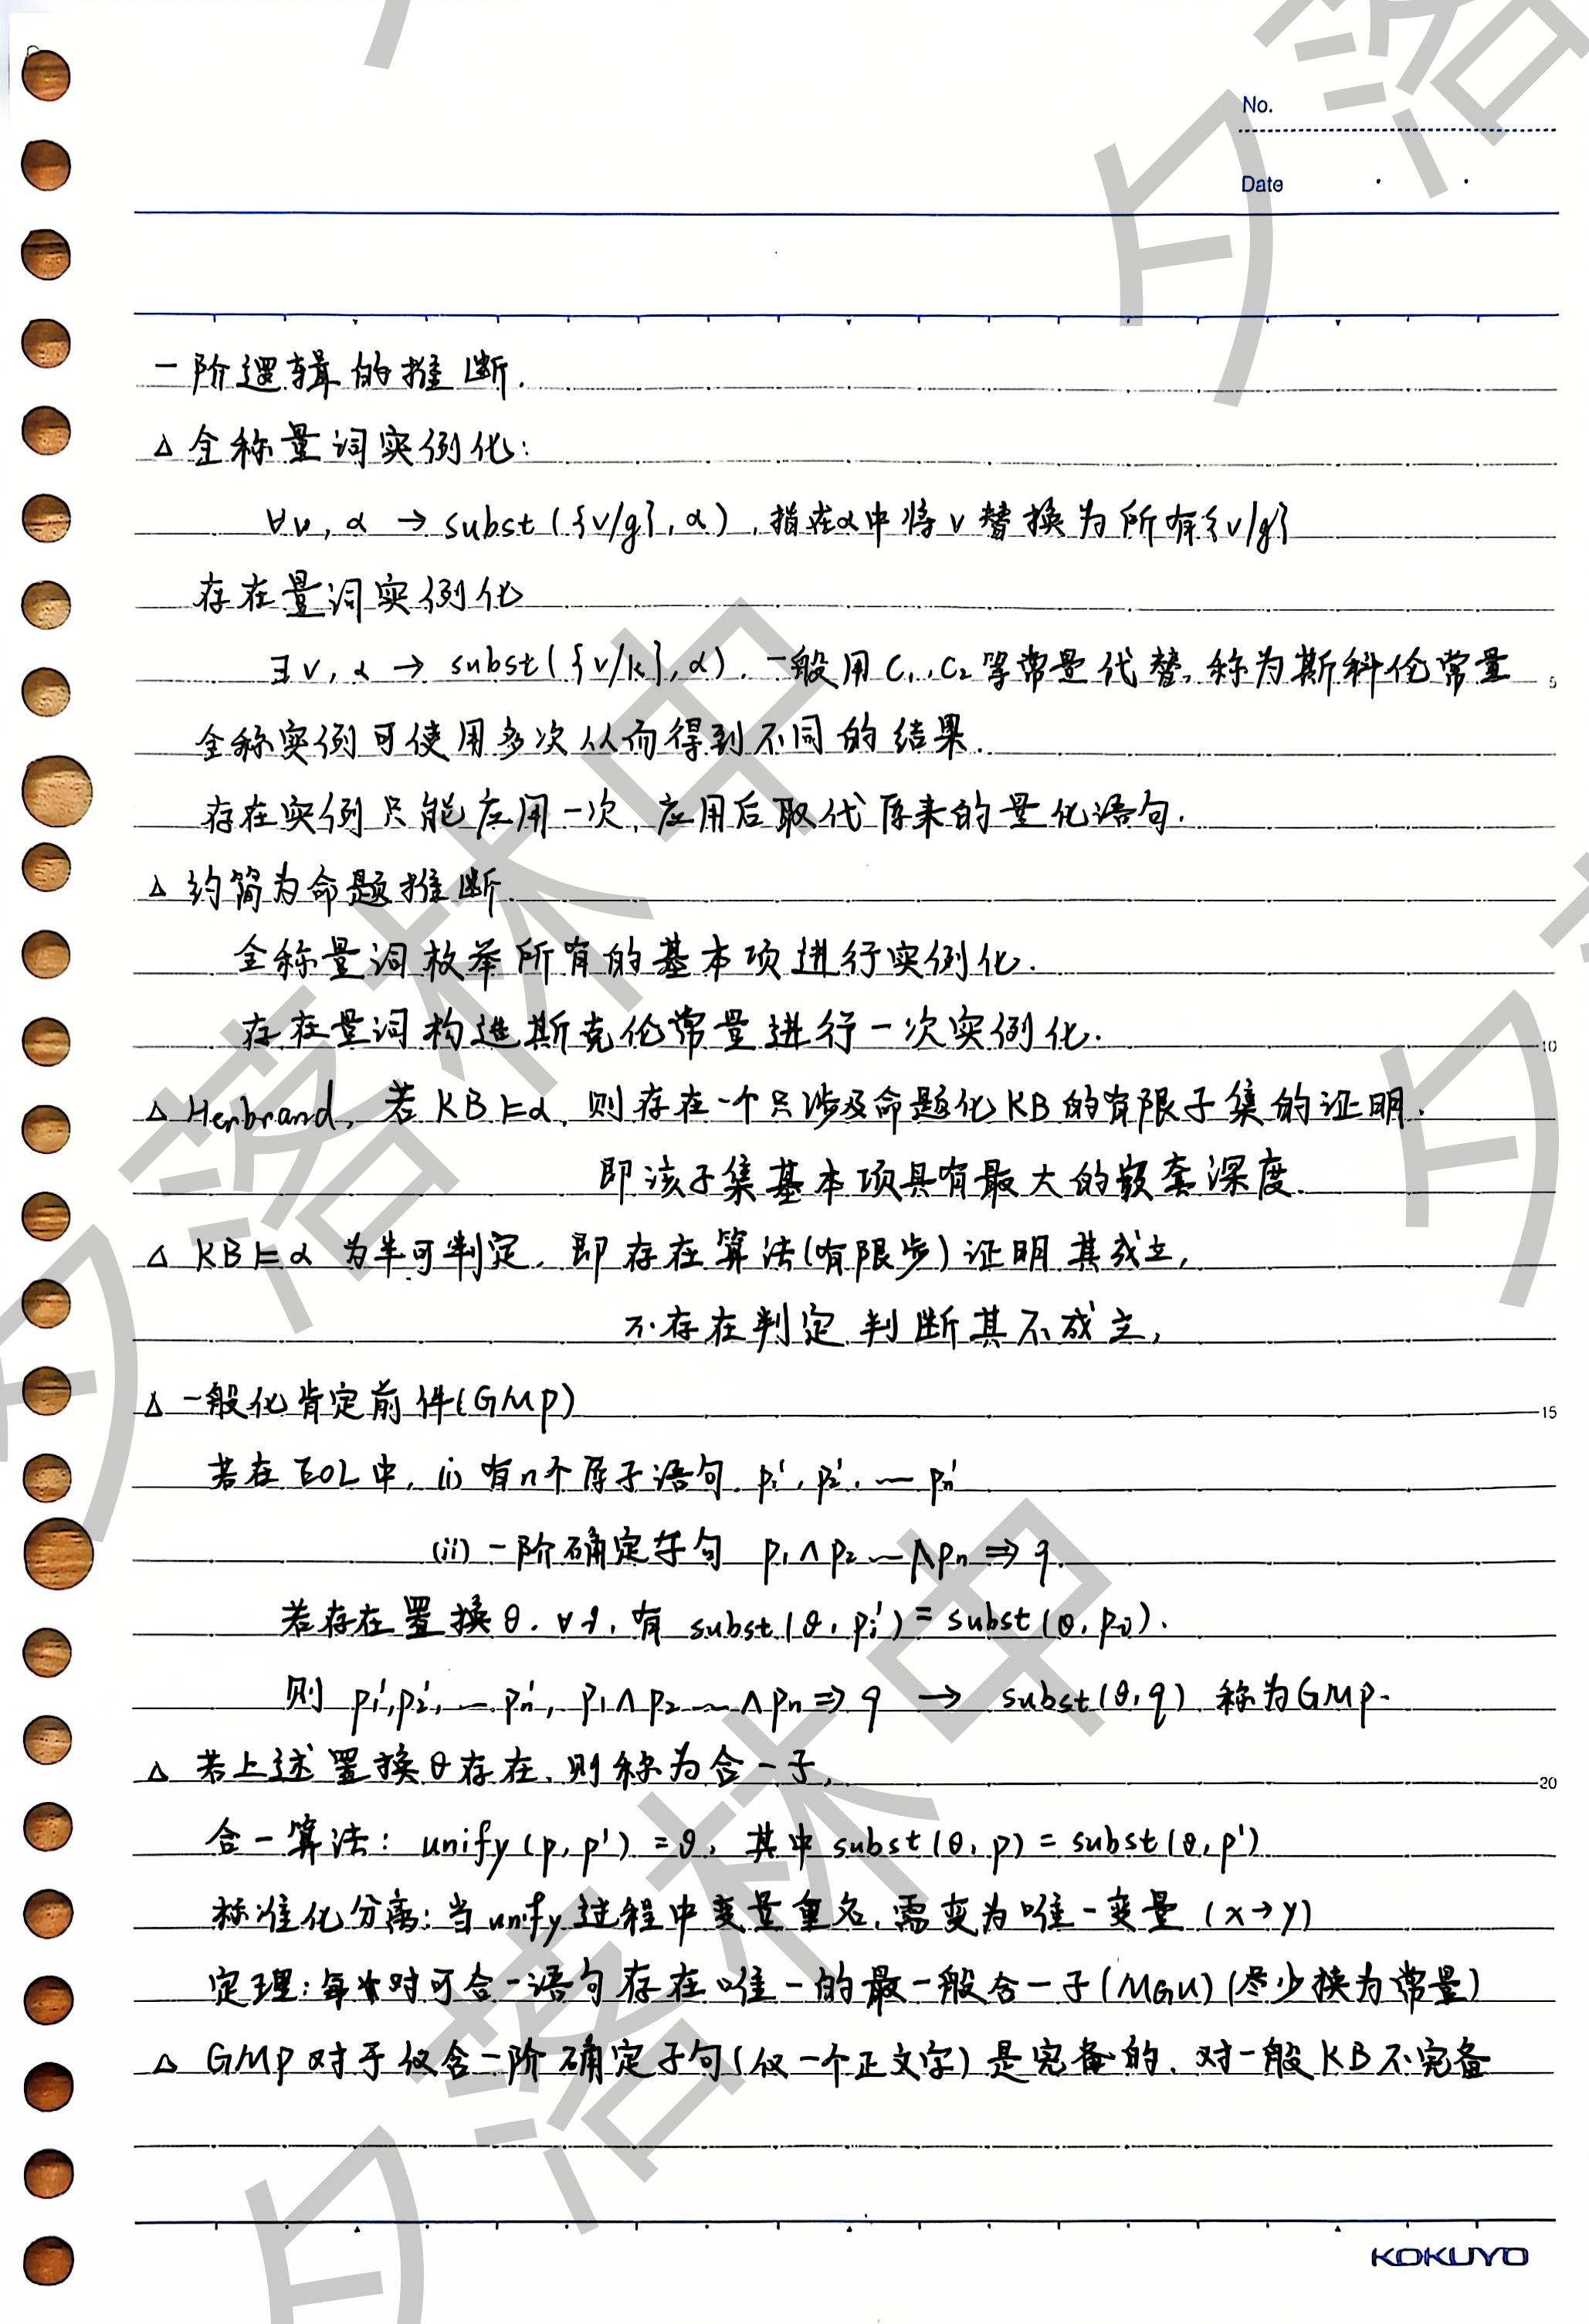 No.
Date
一阶逻辑的推断.
△ 全称量词实例化:
∀v, α → subst({v/g}, α), 指在α中将v替换为所有{v/g}
存在量词实例化
∃v, α → subst({v/k}, α). 一般用C₁, C₂等常量代替, 称为斯科伦常量
5
全称实例可使用多次从而得到不同的结果.
存在实例只能应用一次, 应用后取代原来的量化语句.
△ 约简为命题推断.
全称量词枚举所有的基本项进行实例化.
存在量词构造斯克伦常量进行一次实例化.
10
△ Herbrand, 若KB⊨α, 则存在一个只涉及命题化KB的有限子集的证明.
即该子集基本项具有最大的嵌套深度.
△ KB⊨α 为半可判定, 即存在算法(有限步)证明其成立,
不存在判定判断其不成立,
△ 一般化肯定前件(GMP)
15
若在FOL中, (i) 有n个原子语句. p₁', p₂', … pₙ'
(ii) 一阶确定子句 p₁∧p₂…∧pₙ⇒q.
若存在置换θ. ∀i, 有 subst(θ, pᵢ') = subst(θ, pᵢ).
则 p₁', p₂', … pₙ', p₁∧p₂…∧pₙ⇒q → subst(θ, q) 称为GMP.
△ 若上述置换θ存在, 则称为合一子,
20
合一算法: unify(p, p') = θ, 其中subst(θ, p) = subst(θ, p')
标准化分离: 当unify过程中变量重名, 需变为唯一变量 (x→y)
定理: 每对可合一语句存在唯一的最一般合一子(MGU) (尽少换为常量)
△ GMP对于仅含一阶确定子句(仅一个正文字)是完备的, 对一般KB不完备
KOKUYO
夕落林中
夕落林中
夕落
夕